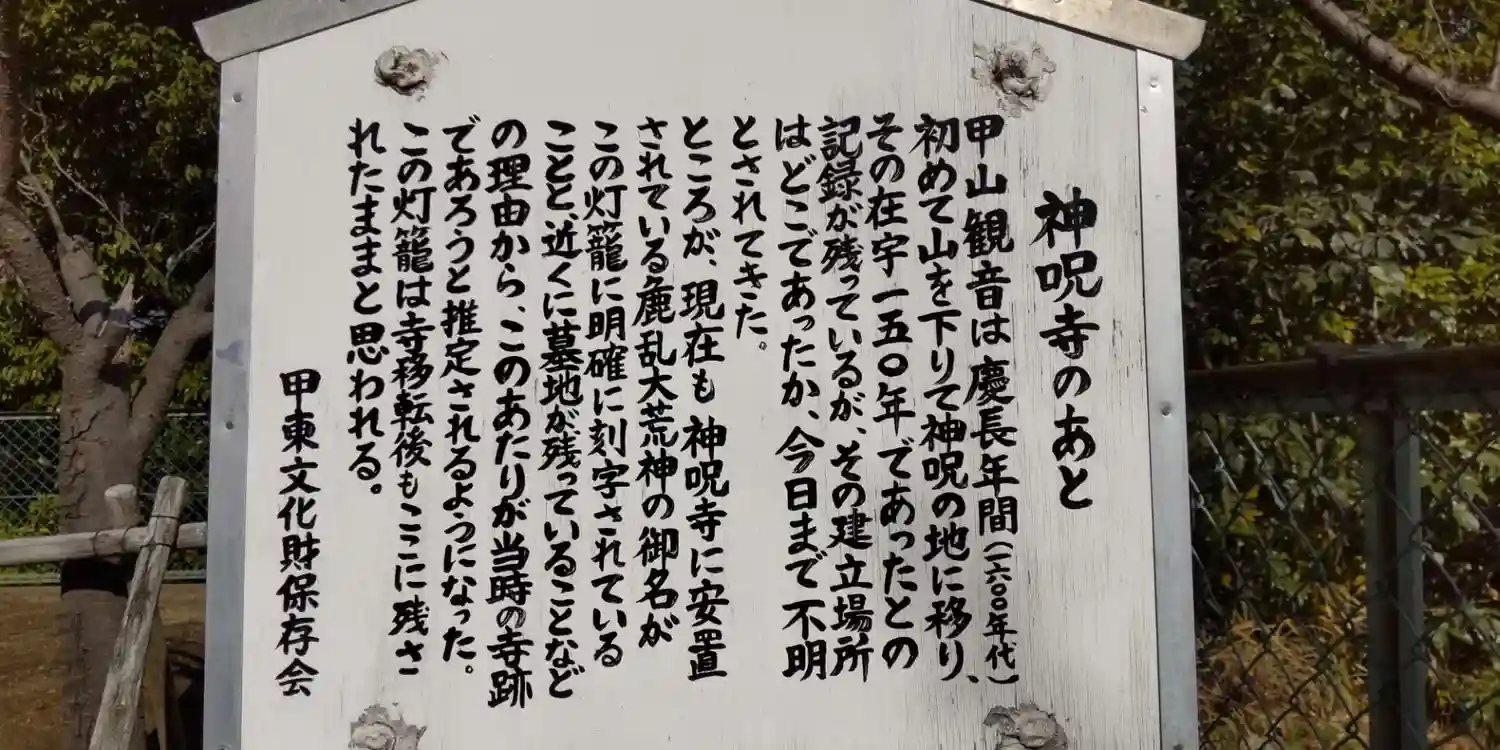 神呪寺のあと
甲山観音は慶長年間(一六〇〇年代)
初めて山を下りて神呪の地に移り、
その在宇一五〇年であったとの
記録が残っているが、その建立場所
はどこであったか、今日まで不明
とされてきた。
ところが、現在も神呪寺に安置
されている麁乱大荒神の御名が
この灯籠に明確に刻字されている
ことと、近くに墓地が残っていることなど
の理由から、このあたりが当時の寺跡
であろうと推定されるようになった。
この灯籠は寺移転後もここに残さ
れたままと思われる。
甲東文化財保存会